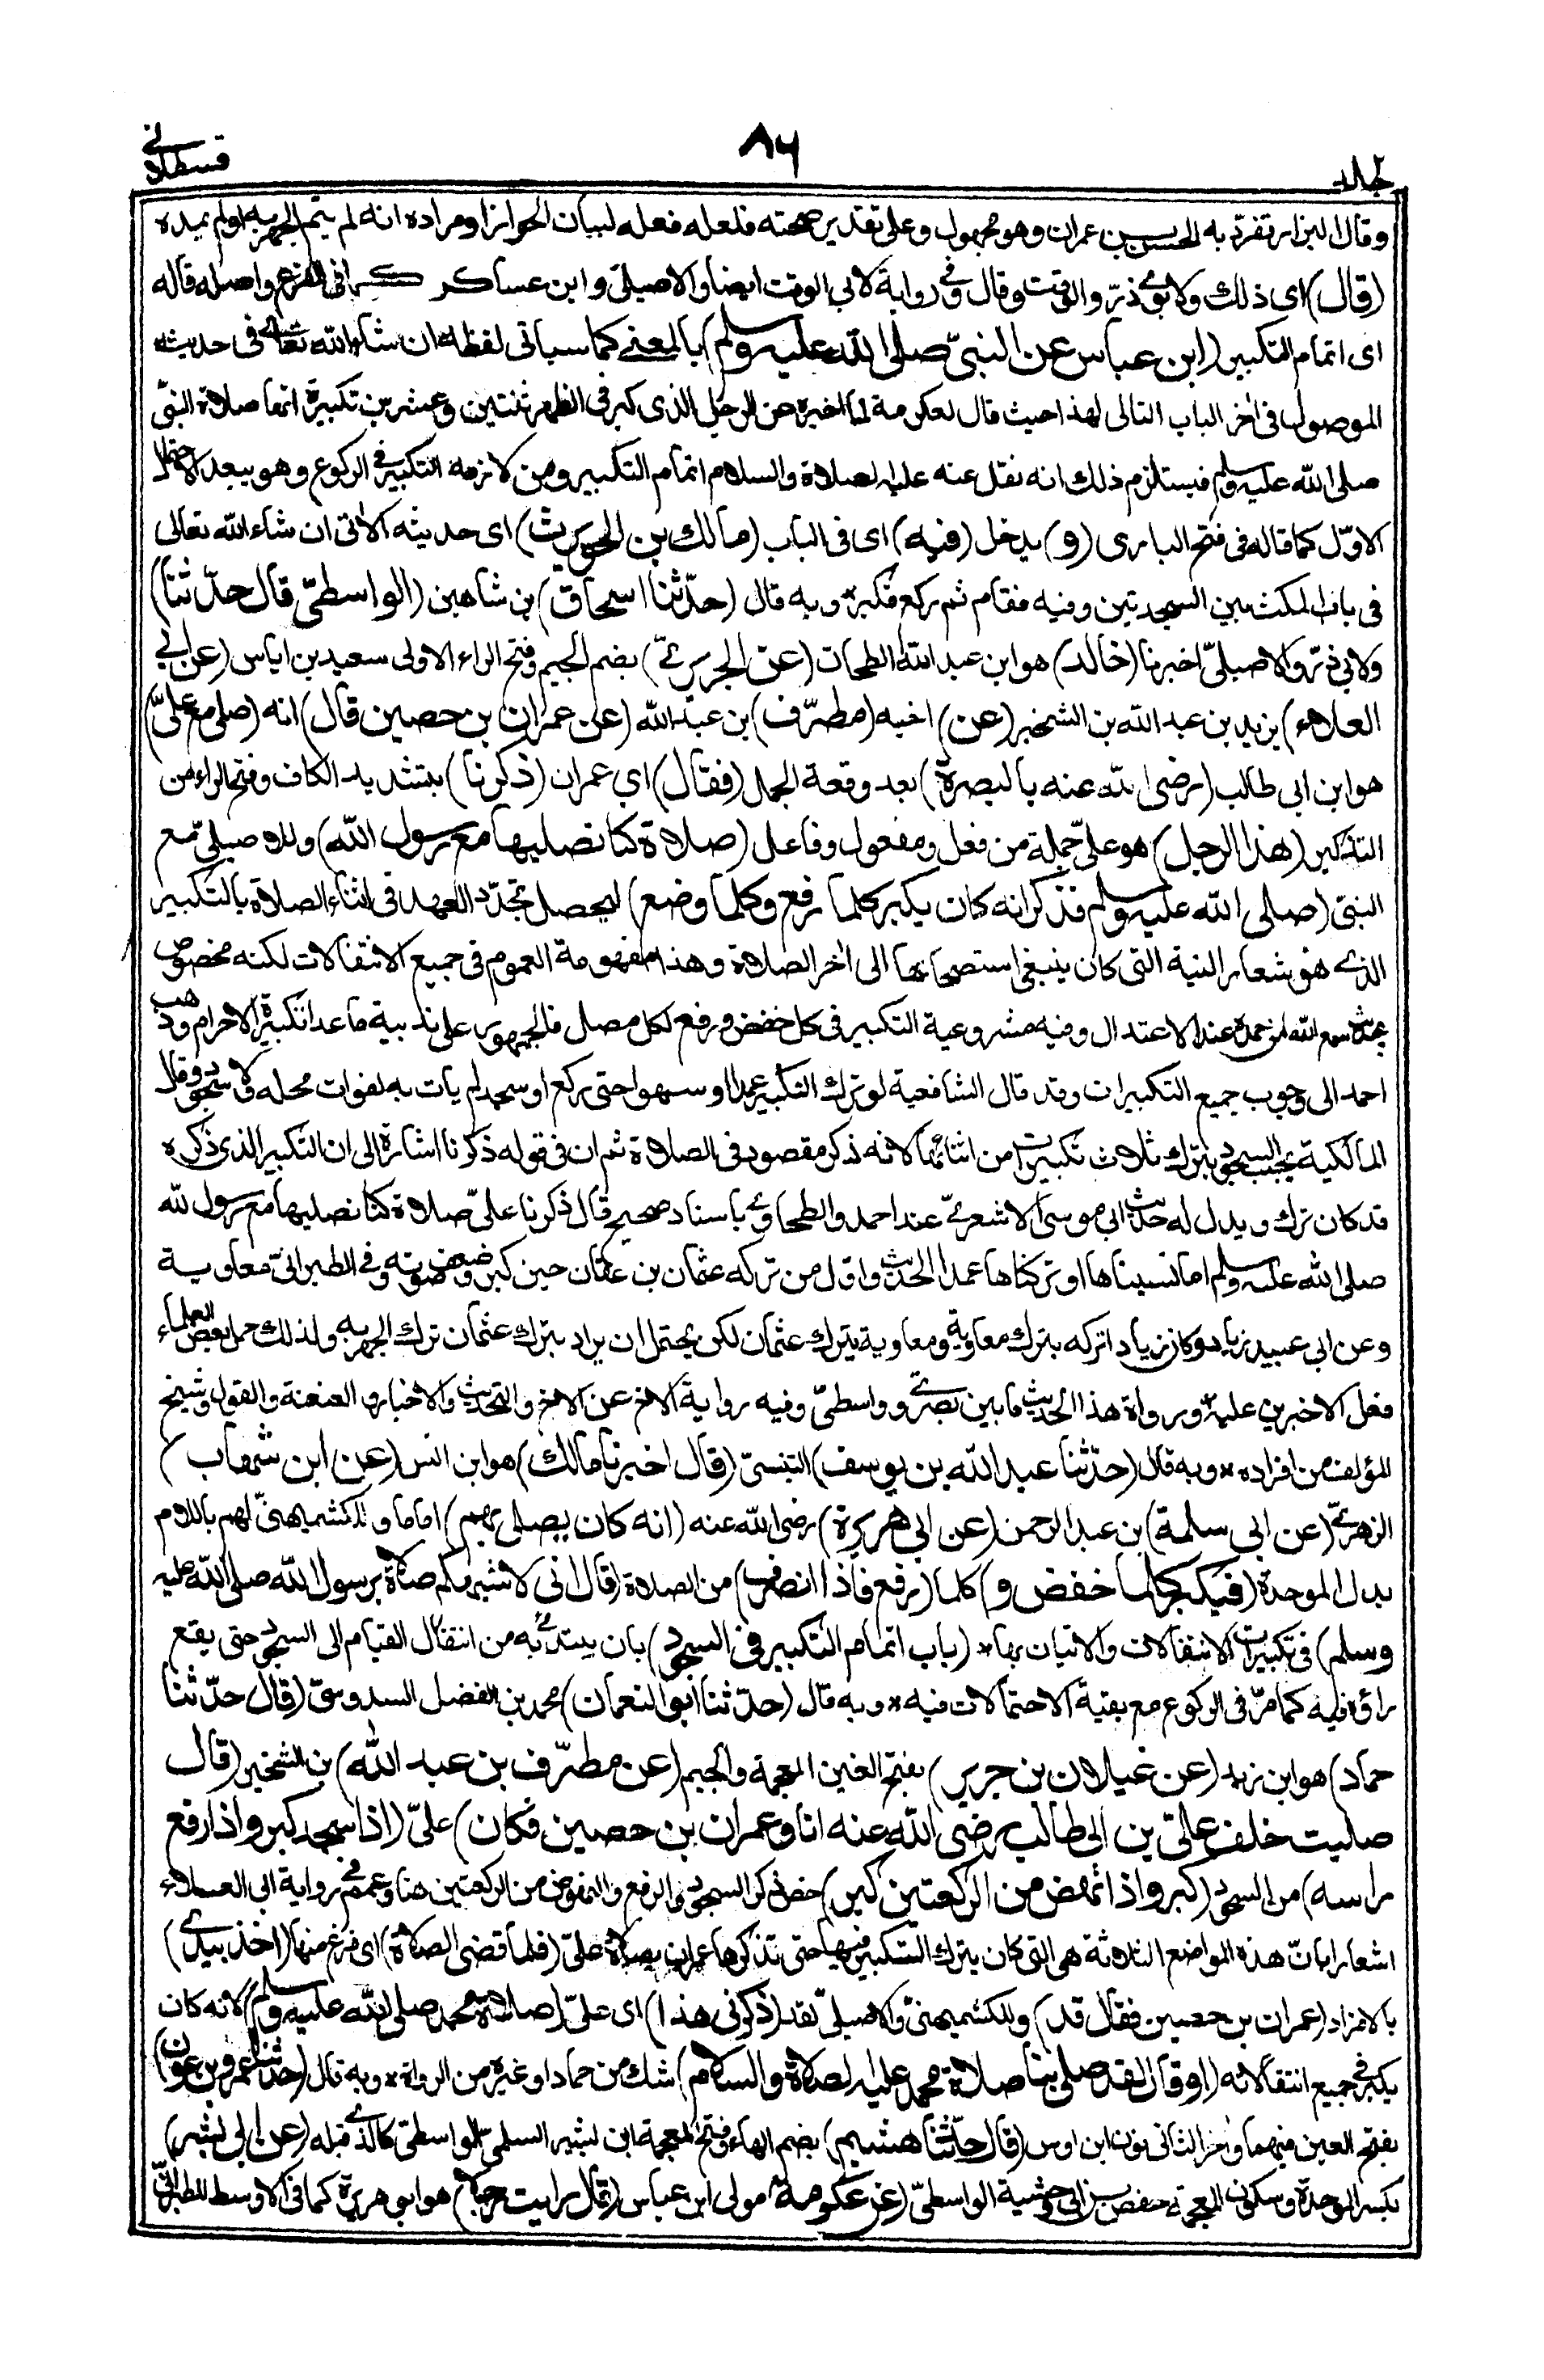 قسطلاني
٨٦
جلد ٢
وقال البزار تفرد به الحسن بن عمران وهو مجهول وعلى تقدير صحته فلعله فعله لبيان الجواز او مراده انه لم يتم الجهر به او لم يمده
(قال) اى ذلك ولابوى ذرّ والوقت وقال وفى رواية لابى الوقت ايضا والاصيلىّ وابن عساكر كما فى الفرع واصله قاله
اى اتمام التكبير (ابن عباس عن النبىّ صلى الله عليه وسلم) بالمعنى كما سياتى لفظه ان شاء الله تعالى فى حديثه
الموصول فى اٰخر الباب التالى لهذا حيث قال لعكرمة لما اخبره عن الرجل الذى كبر فى الظهر ثنتين وعشرين تكبيرة انها صلاة النبىّ
صلى الله عليه وسلم فيستلزم ذلك انه نقل عنه عليه الصلاة والسلام اتمام التكبير ومن لازمه التكبير فى الركوع وهو يبعد الاحتمال
الاوّل كما قاله فى فتح البارى (و) يدخل (فيه) اى فى الباب (مالك بن الحويرث) اى حديثه الاٰتى ان شاء الله تعالى
فى باب المكث بين السجدتين وفيه فقام ثم ركع فكبر* وبه قال (حدّثنا اسحاق) بن شاهين (الواسطىّ قال حدّثنا)
ولابى ذرّ والاصيلىّ اخبرنا (خالد) هو ابن عبد الله الطحان (عن الجريرىّ) بضم الجيم وفتح الراء الاولى سعيد بن اياس (عن ابى
العلاء) يزيد بن عبد الله بن الشخير (عن) اخيه (مطرّف) بن عبد الله (عن عمران بن حصين قال) انه (صلى مع علىّ)
هو ابن ابى طالب (رضى الله عنه بالبصرة) بعد وقعة الجمل (فقال) اي عمران (ذكرنا) بتشديد الكاف وفتح الراء من
التذكير (هذا الرجل) هو علىّ جملة من فعل ومفعول وفاعل (صلاة كنا نصليها مع رسول الله) وللاصيلىّ مع
النبىّ (صلى الله عليه وسلم فذكر انه كان يكبر كلما رفع وكلما وضع) ليحصل تجدّد العهد فى اثناء الصلاة بالتكبير
الذى هو شعار النية التى كان ينبغى استصحابها الى اٰخر الصلاة وهذا مفهومه العموم فى جميع الانتقالات لكنه مخصوص
بحديث سمع الله لمن حمده عند الاعتدال وفيه مشروعية التكبير فى كل خفض ورفع لكل مصل فالجمهور على ندبية ما عدا تكبيرة الاحرام وذهب
احمد الى وجوب جميع التكبيرات وقد قال الشافعية لو ترك التكبير عمدا او سهوا حتى ركع او سجد لم يات به لفوات محله ولا سجود وقال
المالكية يجب السجود بترك ثلاث تكبيرات من اثنائها لانه ذكر مقصود فى الصلاة ثم ان فى قوله ذكرنا اشارة الى ان التكبير الذى ذكره
قد كان ترك ويدل له حديث ابى موسى الاشعرىّ عند احمد والطحاوىّ باسناد صحيح قال ذكرنا علىّ صلاة كنا نصليها مع رسول الله
صلى الله عليه وسلم اما نسيناها او تركناها عمدا الحديث واوّل من تركه عثمان بن عفان حين كبر وضعف صوته وفى الطبرانىّ معاوية
وعن ابى عبيد زياد وكان زياد اتركه بترك معاوية ومعاوية بترك عثمان لكن يحتمل ان يراد بترك عثمان ترك الجهر به ولذلك حمل بعض العلماء
فعل الاخيرين عليه* ورواة هذا الحديث ما بين بصرىّ وواسطىّ وفيه رواية الاخ عن الاخ والتحديث والاخبار والعنعنة والقول وشيخ
المؤلف من افراده* وبه قال (حدّثنا عبد الله بن يوسف) التنيسىّ (قال اخبرنا مالك) هو ابن انس (عن ابن شهاب)
الزهرىّ (عن ابى سلمة) بن عبد الرحمن (عن ابى هريرة) رضى الله عنه (انه كان يصلى بهم) اماما وللكشميهنىّ لهم باللام
بدل الموحدة (فيكبر كلما خفض و) كلما (رفع فاذا انصرف) من الصلاة (قال انى لاشبهكم صلاة برسول الله صلى الله عليه
وسلم) فى تكبيرات الانتقالات والاتيان بها* (باب اتمام التكبير فى السجود) بان يبتدئ به من انتقال القيام الى السجود حتى يقع
راؤه فيه كما مرّ فى الركوع مع بقية الاحتمالات فيه* وبه قال (حدّثنا ابو النعمان) محمد بن الفضل السدوسىّ (قال حدّثنا
حماد) هو ابن زيد (عن غيلان بن جرير) بفتح الغين المعجمة والجيم (عن مطرّف بن عبد الله) بن الشخير (قال
صليت خلف علىّ بن ابى طالب رضى الله عنه انا وعمران بن حصين فكان) علىّ (اذا سجد كبر واذا رفع
راسه) من السجود (كبر واذا نهض من الركعتين كبر) خص ذكر السجود والرفع والنهوض من الركعتين هنا وعمم فى رواية ابى العلاء
اشعارا بانّ هذه المواضع الثلاثة هى التى كان يترك التكبير فيها حتى تذكرها عمران بصلاة علىّ (فلما قضى الصلاة) اى فرغ منها (اخذ بيدى)
بالافراد (عمران بن حصين فقال قد) وللكشميهنىّ والاصيلىّ لقد (ذكرنى هذا) اى علىّ (صلاة محمد صلى الله عليه وسلم) لانه كان
يكبر فى جميع انتقالاته (او قال لقد صلى بنا صلاة محمد عليه الصلاة والسلام) شك من حماد او غيره من الرواة* وبه قال (حدّثنا عمرو بن عون)
بفتح العين فيهما واٰخر الثانى نون ابن اوس (قال حدّثنا هشيم) بضم الهاء وفتح المعجمة ابن بشير السلمىّ الواسطىّ كالذى قبله (عن ابى بشر)
بكسر الموحدة وسكون المعجمة حفص بن ابى وحشية الواسطىّ (عن عكرمة) مولى ابن عباس (قال رايت رجلا) هو ابو هريرة كما فى الاوسط للطبرانىّ